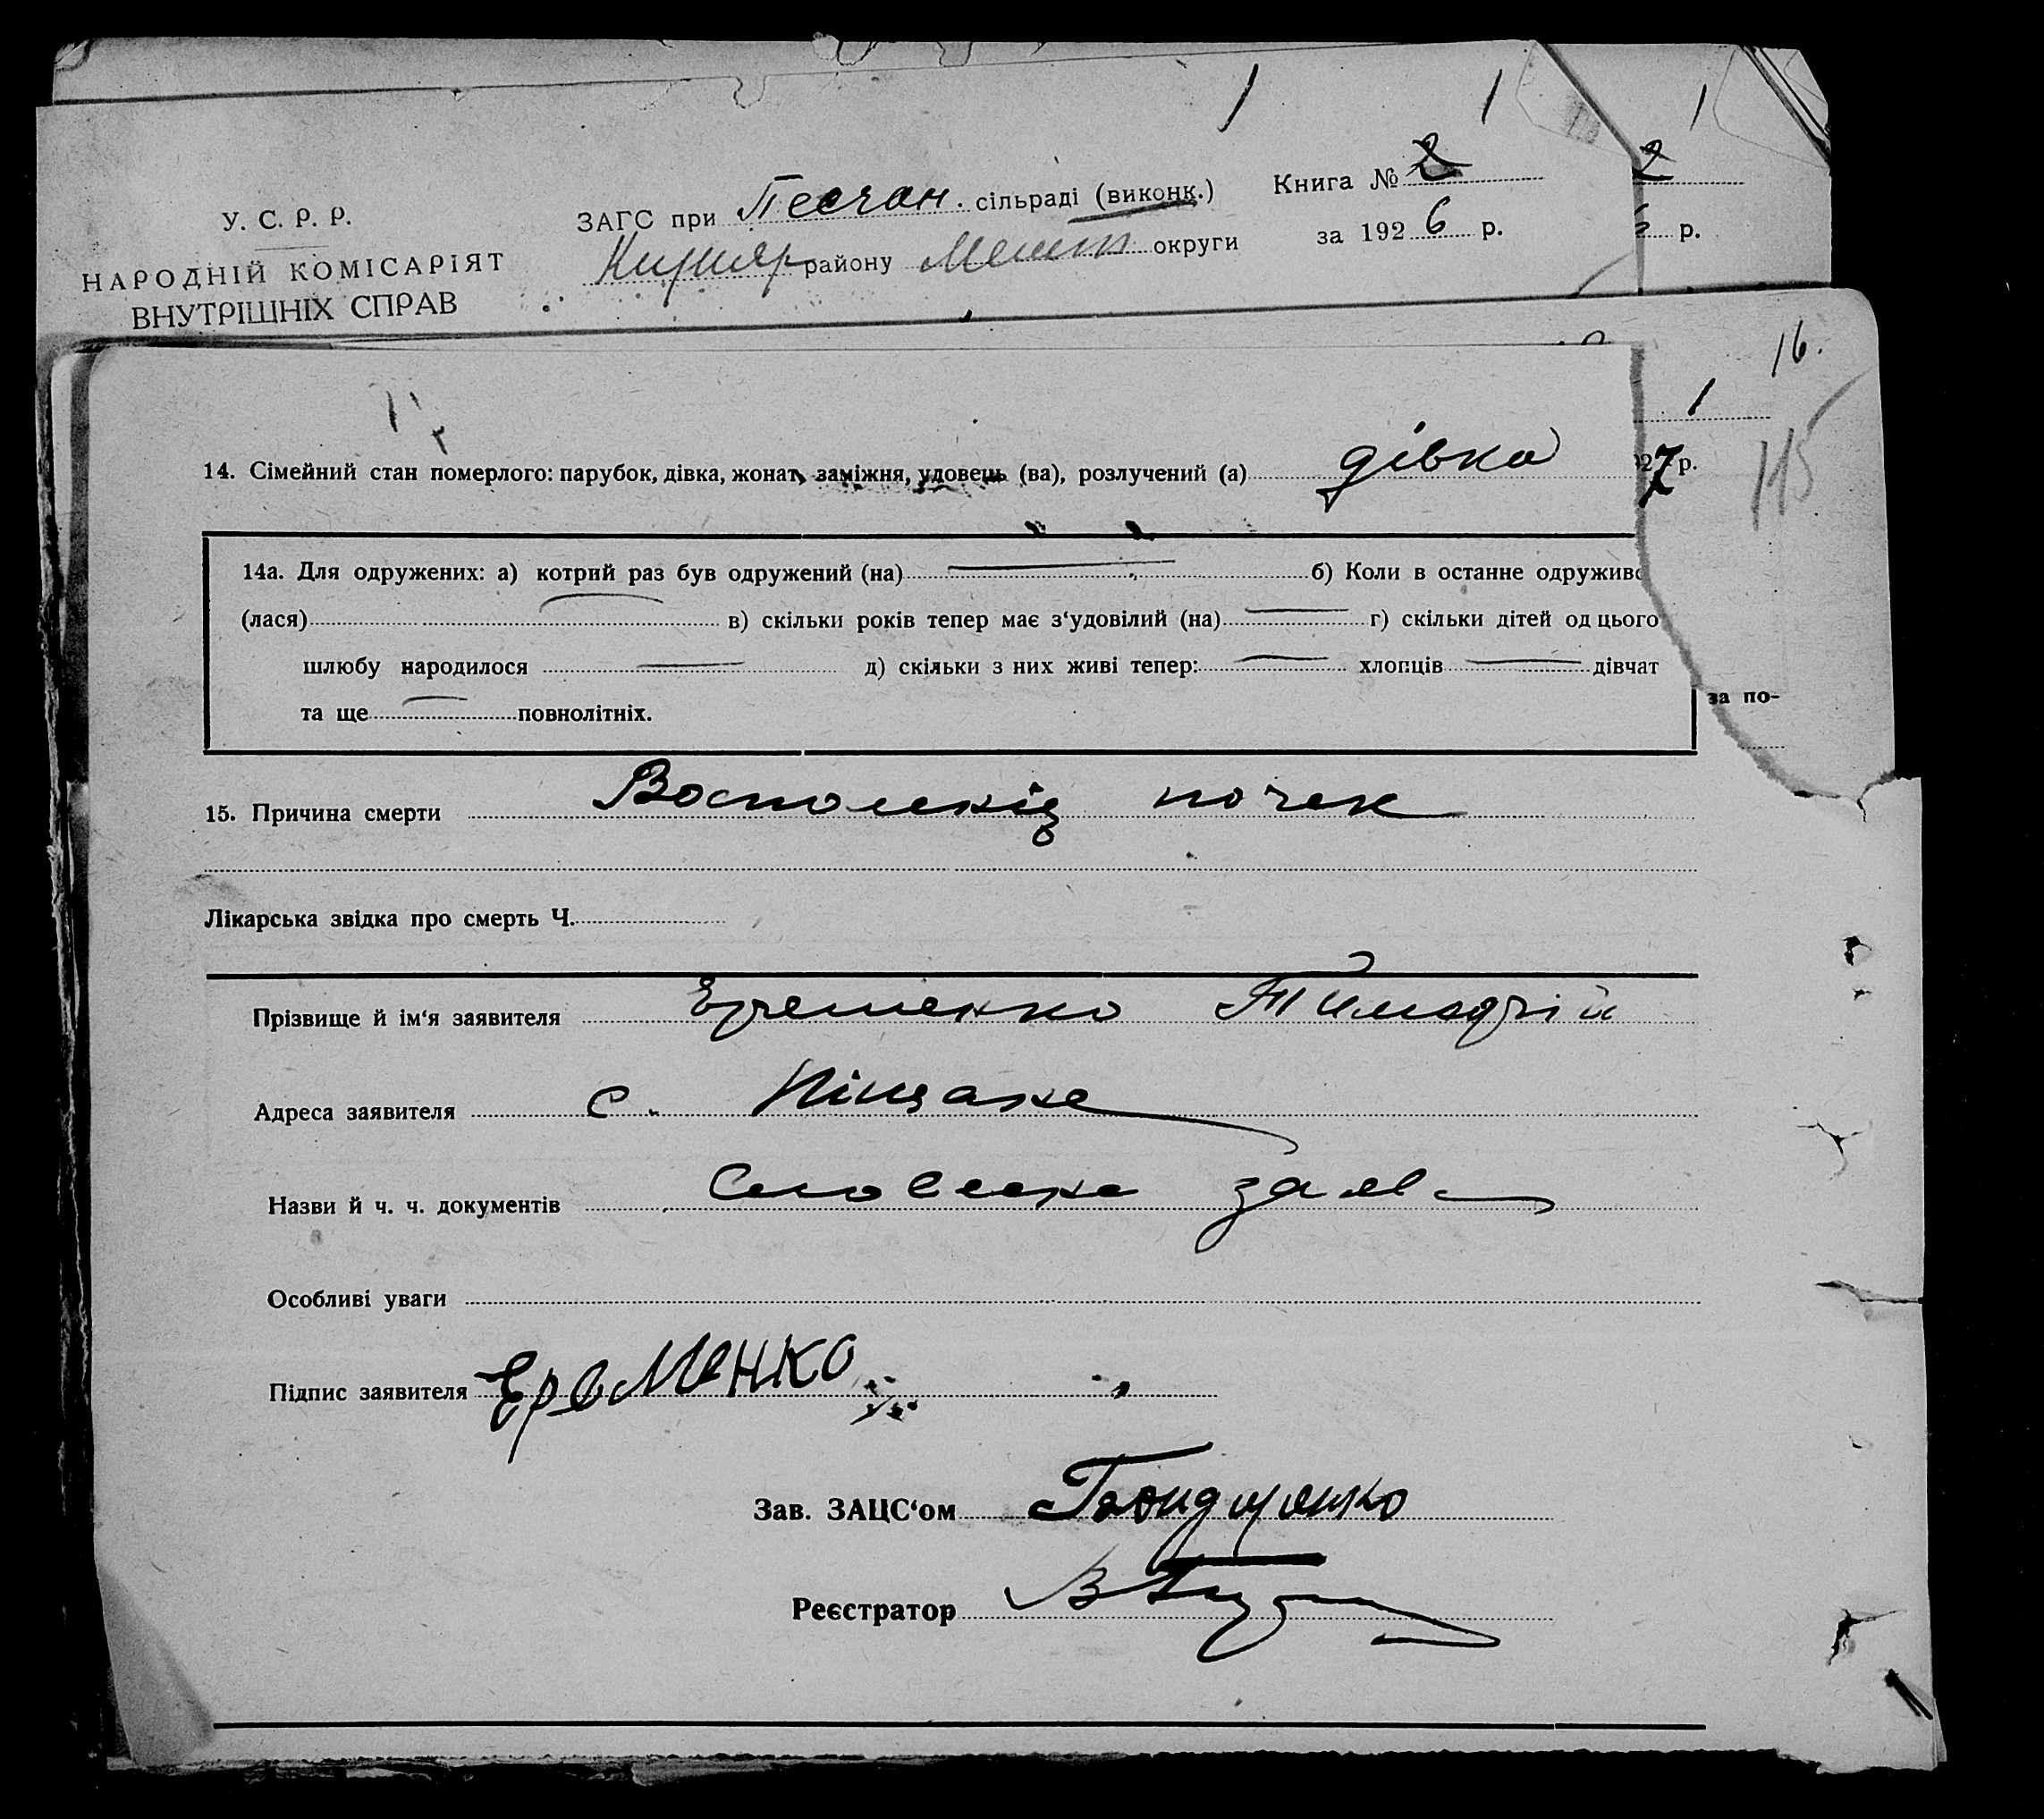 1 1 1
У. С. Р. Р.
НАРОДНІЙ КОМІСАРІЯТ
ВНУТРІШНІХ СПРАВ
ЗАГС при Песчан. сільраді (виконк.) Книга № 2 2
району округи за 192 6 р. р.
16.
1
115
14. Сімейний стан померлого: парубок, дівка, жонат, заміжня, удовець (ва), розлучений (а) дівка 27 р.
14а. Для одружених: а) котрий раз був одружений (на) б) Коли в останне одруживс
(лася) в) скільки років тепер має з‘удовілий (на) г) скільки дітей од цього
шлюбу народилося д) скільки з них живі тепер: хлопців дівчат
за по-
та ще повнолітніх.
15. Причина смерти Воспаленія почек
Лікарська звідка про смерть Ч.
Прізвище й ім‘я заявителя Еременко Тимофій
Адреса заявителя с. Піщане
Назви й ч. ч. документів Словесна заява
Особливі уваги
Підпис заявителя Ерeменко
Зав. ЗАЦС‘ом
Реєстратор